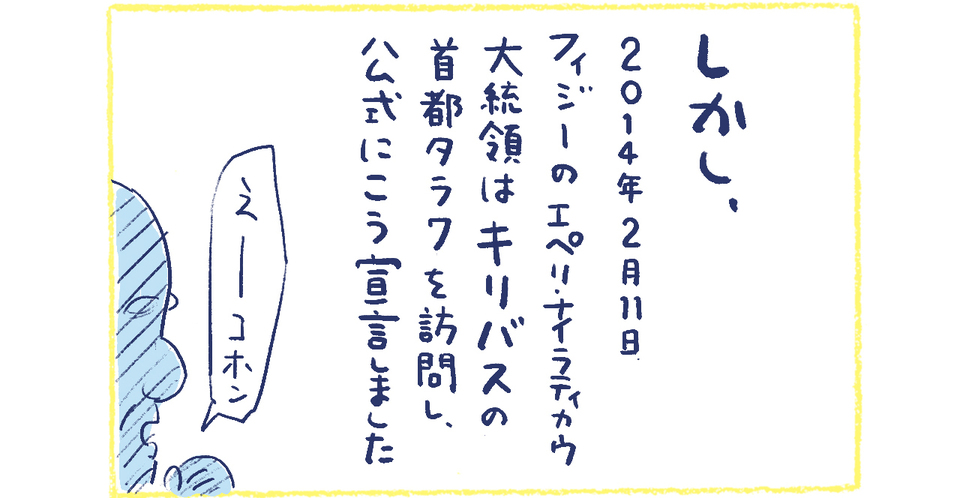 しかし、
2014年2月11日
フィジーのエペリ・ナイラティカウ
大統領はキリバスの
首都タラワを訪問し、
公式にこう宣言しました
えーコホン